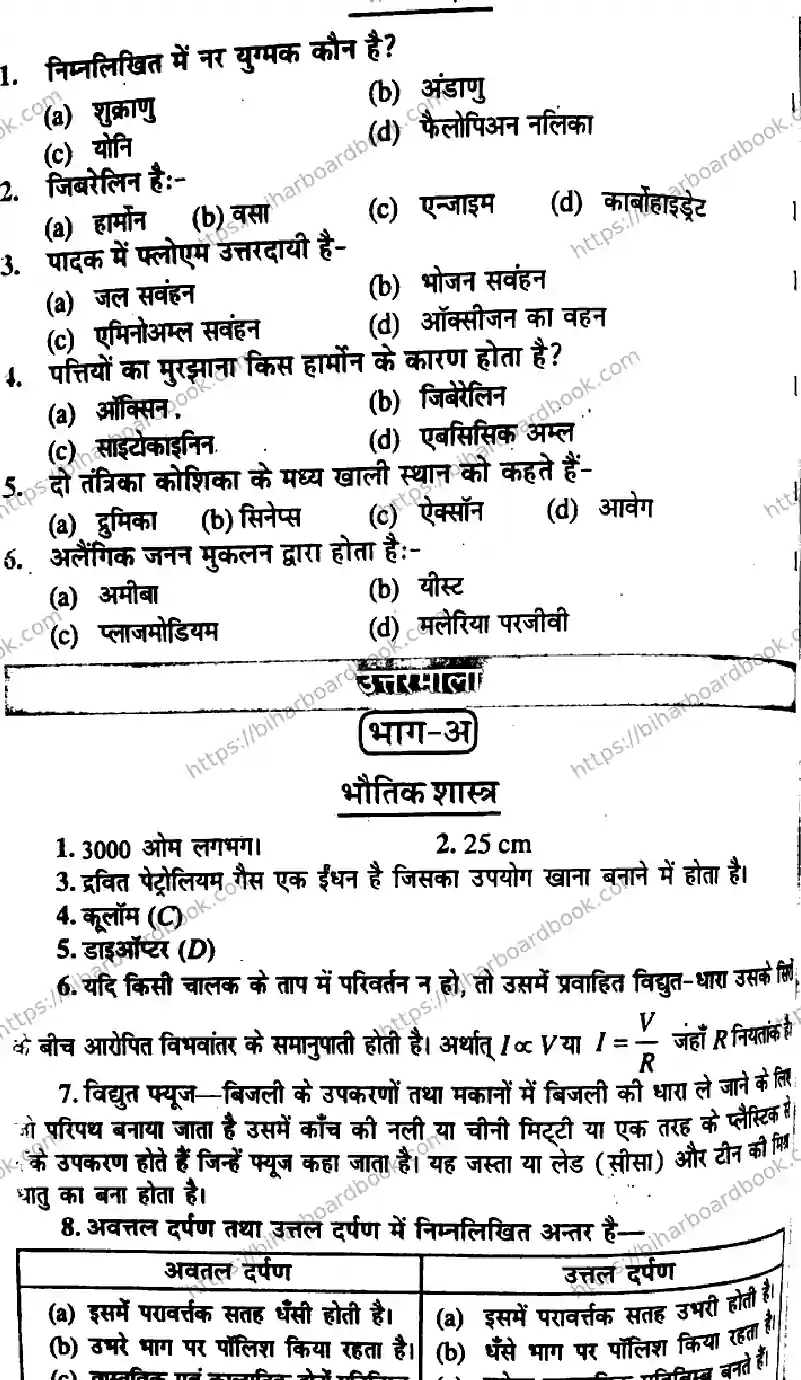 1. निम्नलिखित में नर युग्मक कौन है?
(a) शुक्राणु (b) अंडाणु
(c) योनि (d) फैलोपिअन नलिका
2. जिबरेलिन है:-
(a) हार्मोन (b) वसा (c) एन्जाइम (d) कार्बोहाइड्रेट
3. पादक में फ्लोएम उत्तरदायी है-
(a) जल सवंहन (b) भोजन सवंहन
(c) एमिनोअम्ल सवंहन (d) ऑक्सीजन का वहन
4. पत्तियों का मुरझाना किस हार्मोन के कारण होता है?
(a) ऑक्सिन (b) जिबेरेलिन
(c) साइटोकाइनिन (d) एबसिसिक अम्ल
5. दो तंत्रिका कोशिका के मध्य खाली स्थान को कहते हैं-
(a) द्रुमिका (b) सिनेप्स (c) ऐक्सॉन (d) आवेग
6. अलैंगिक जनन मुकलन द्वारा होता है:-
(a) अमीबा (b) यीस्ट
(c) प्लाजमोडियम (d) मलेरिया परजीवी
उत्तरमाला
भाग-अ
भौतिक शास्त्र
1. 3000 ओम लगभग। 2. 25 cm
3. द्रवित पेट्रोलियम गैस एक ईंधन है जिसका उपयोग खाना बनाने में होता है।
4. कूलॉम (C)
5. डाइऑप्टर (D)
6. यदि किसी चालक के ताप में परिवर्तन न हो, तो उसमें प्रवाहित विद्युत-धारा उसके
के बीच आरोपित विभवांतर के समानुपाती होती है। अर्थात् I ∝ V या I = V/R जहाँ R नियतांक है।
7. विद्युत फ्यूज—बिजली के उपकरणों तथा मकानों में बिजली की धारा ले जाने के लिए
परिपथ बनाया जाता है उसमें काँच की नली या चीनी मिट्टी या एक तरह के प्लैस्टिक
के उपकरण होते हैं जिन्हें फ्यूज कहा जाता है। यह जस्ता या लेड (सीसा) और टीन की
धातु का बना होता है।
8. अवत्तल दर्पण तथा उत्तल दर्पण में निम्नलिखित अन्तर है—
अवतल दर्पण उत्तल दर्पण
(a) इसमें परावर्त्तक सतह धँसी होती है। (a) इसमें परावर्त्तक सतह उभरी होती है।
(b) उभरे भाग पर पॉलिश किया रहता है। (b) धँसे भाग पर पॉलिश किया रहता है।
https://biharboardbook.com